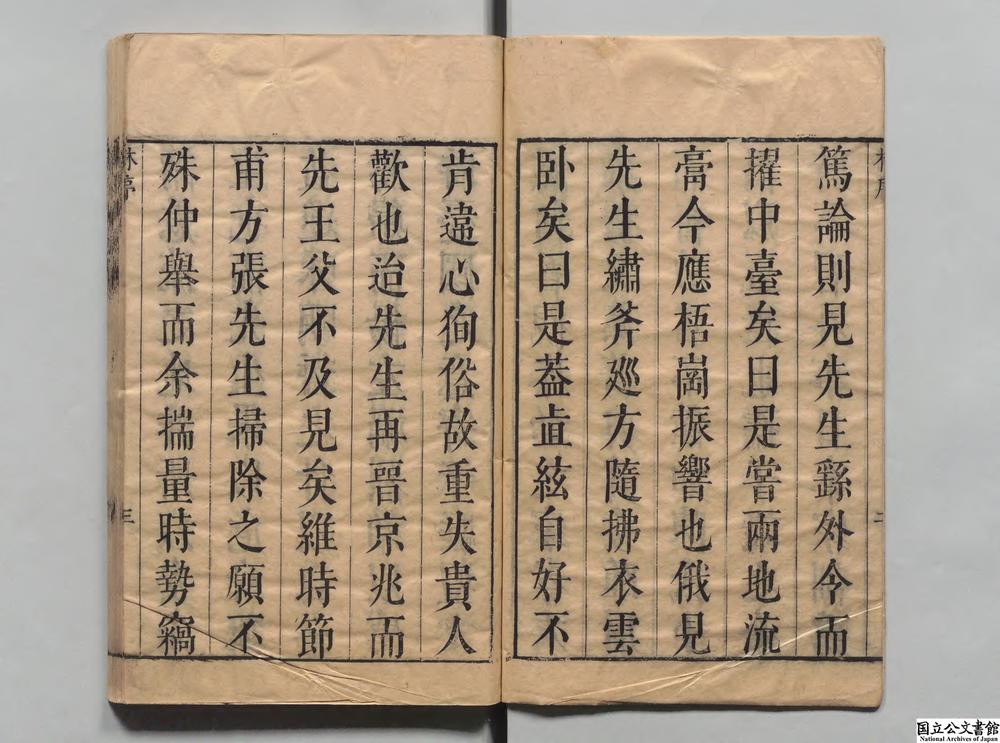 篤論則見先生繇外令而
擢中臺矣曰是嘗兩地流
膏今應梧崗振響也俄見
先生繡斧廵方隨拂衣雲
卧矣曰是葢直絃自好不
肯違心狥俗故重失貴人
歡也迨先生再晋京兆而
先王父不及見矣維時節
甫方張先生掃除之願不
殊仲舉而余揣量時勢竊
三
国立公文書館
National Archives of Japan